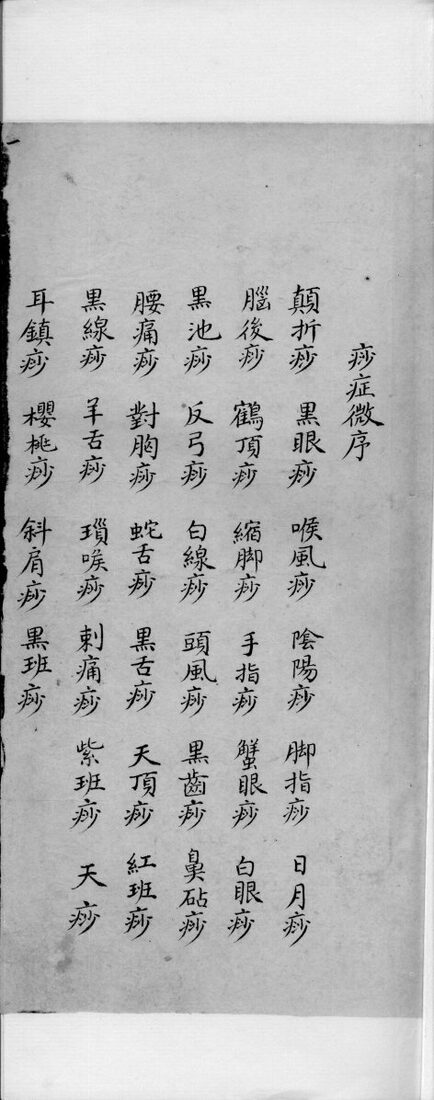 痧症微序
顛折痧 黒眼痧 喉風痧 陰陽痧 脚指痧 日月痧
腦後痧 鶴頂痧 縮脚痧 手指痧 蟹眼痧 白眼痧
黒池痧 反弓痧 白線痧 頭風痧 黒齒痧 鼻砧痧
腰痛痧 對胸痧 蛇舌痧 黒舌痧 天頂痧 紅班痧
黒線痧 羊舌痧 瑣喉痧 刺痛痧 紫班痧 天痧
耳鎮痧 櫻桃痧 斜肩痧 黒班痧